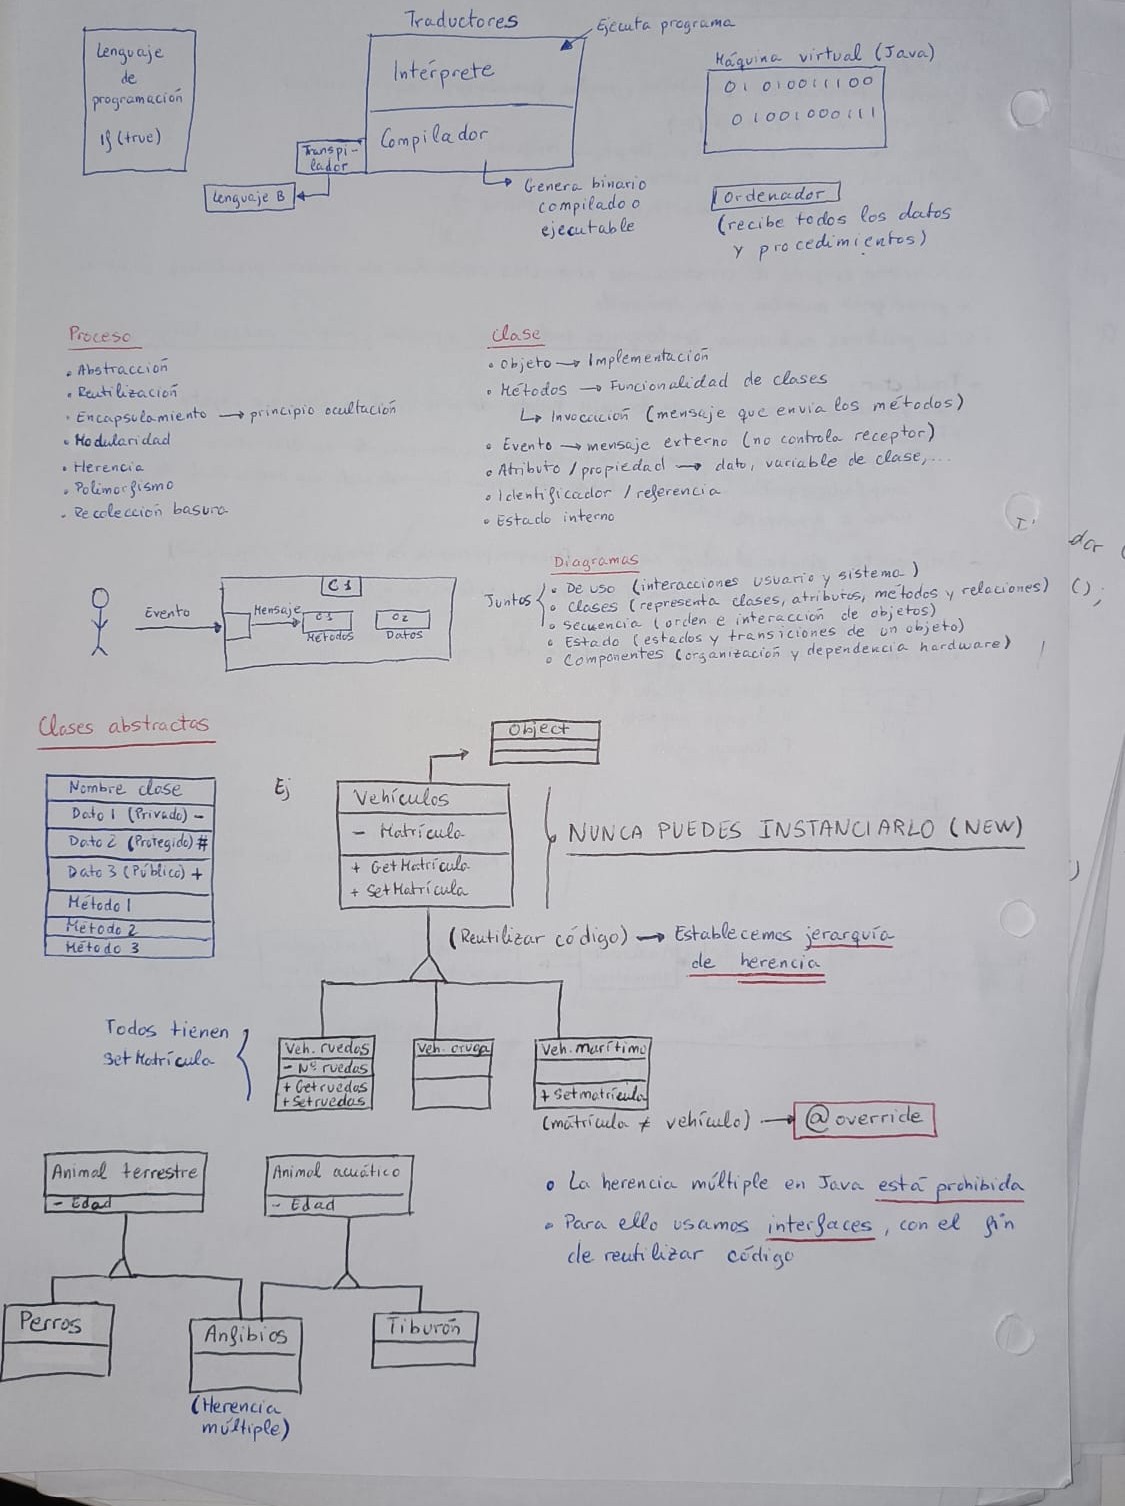 Traductores
Ejecuta programa
Lenguaje
de
programación
If (true)
Intérprete
Compilador
Transpi-
lador
Lenguaje B
Genera binario
compilado o
ejecutable
Máquina virtual (Java)
01 010011100
01001000111
Ordenador
(recibe todos los datos
y procedimientos)
Proceso
• Abstracción
• Reutilización
• Encapsulamiento → principio ocultación
• Modularidad
• Herencia
• Polimorfismo
• Recolección basura
Clase
• Objeto → Implementación
• Métodos → Funcionalidad de clases
↳ Invocación (mensaje que envia los métodos)
• Evento → mensaje externo (no controla receptor)
• Atributo / propiedad → dato, variable de clase,...
• Identificador / referencia
• Estado interno
Evento
C1
Mensaje
C1
Métodos
C2
Datos
Diagramas
Juntos
• De uso (interacciones usuario y sistema)
• Clases (representa clases, atributos, métodos y relaciones)
• Secuencia (orden e interacción de objetos)
• Estado (estados y transiciones de un objeto)
• Componentes (organización y dependencia hardware)
dor (
();
Clases abstractas
Nombre clase
Dato 1 (Privado) -
Dato 2 (Protegido) #
Dato 3 (Público) +
Método 1
Método 2
Método 3
Ej
Object
Vehículos
- Matrícula
+ GetMatrícula
+ SetMatrícula
NUNCA PUEDES INSTANCIARLO (NEW)
(Reutilizar código) → Establecemos jerarquía
de herencia
Todos tienen
setMatrícula
Veh. ruedas
- Nº ruedas
+ Getruedas
+ Setruedas
Veh. oruga
Veh. marítimo
+ Setmatrícula
(mátrícula ≠ vehículo) → @override
Animal terrestre
- Edad
Animal acuático
- Edad
Perros
Anfibios
Tiburón
(Herencia
múltiple)
• La herencia múltiple en Java está prohibida
• Para ello usamos interfaces, con el fin
de reutilizar código